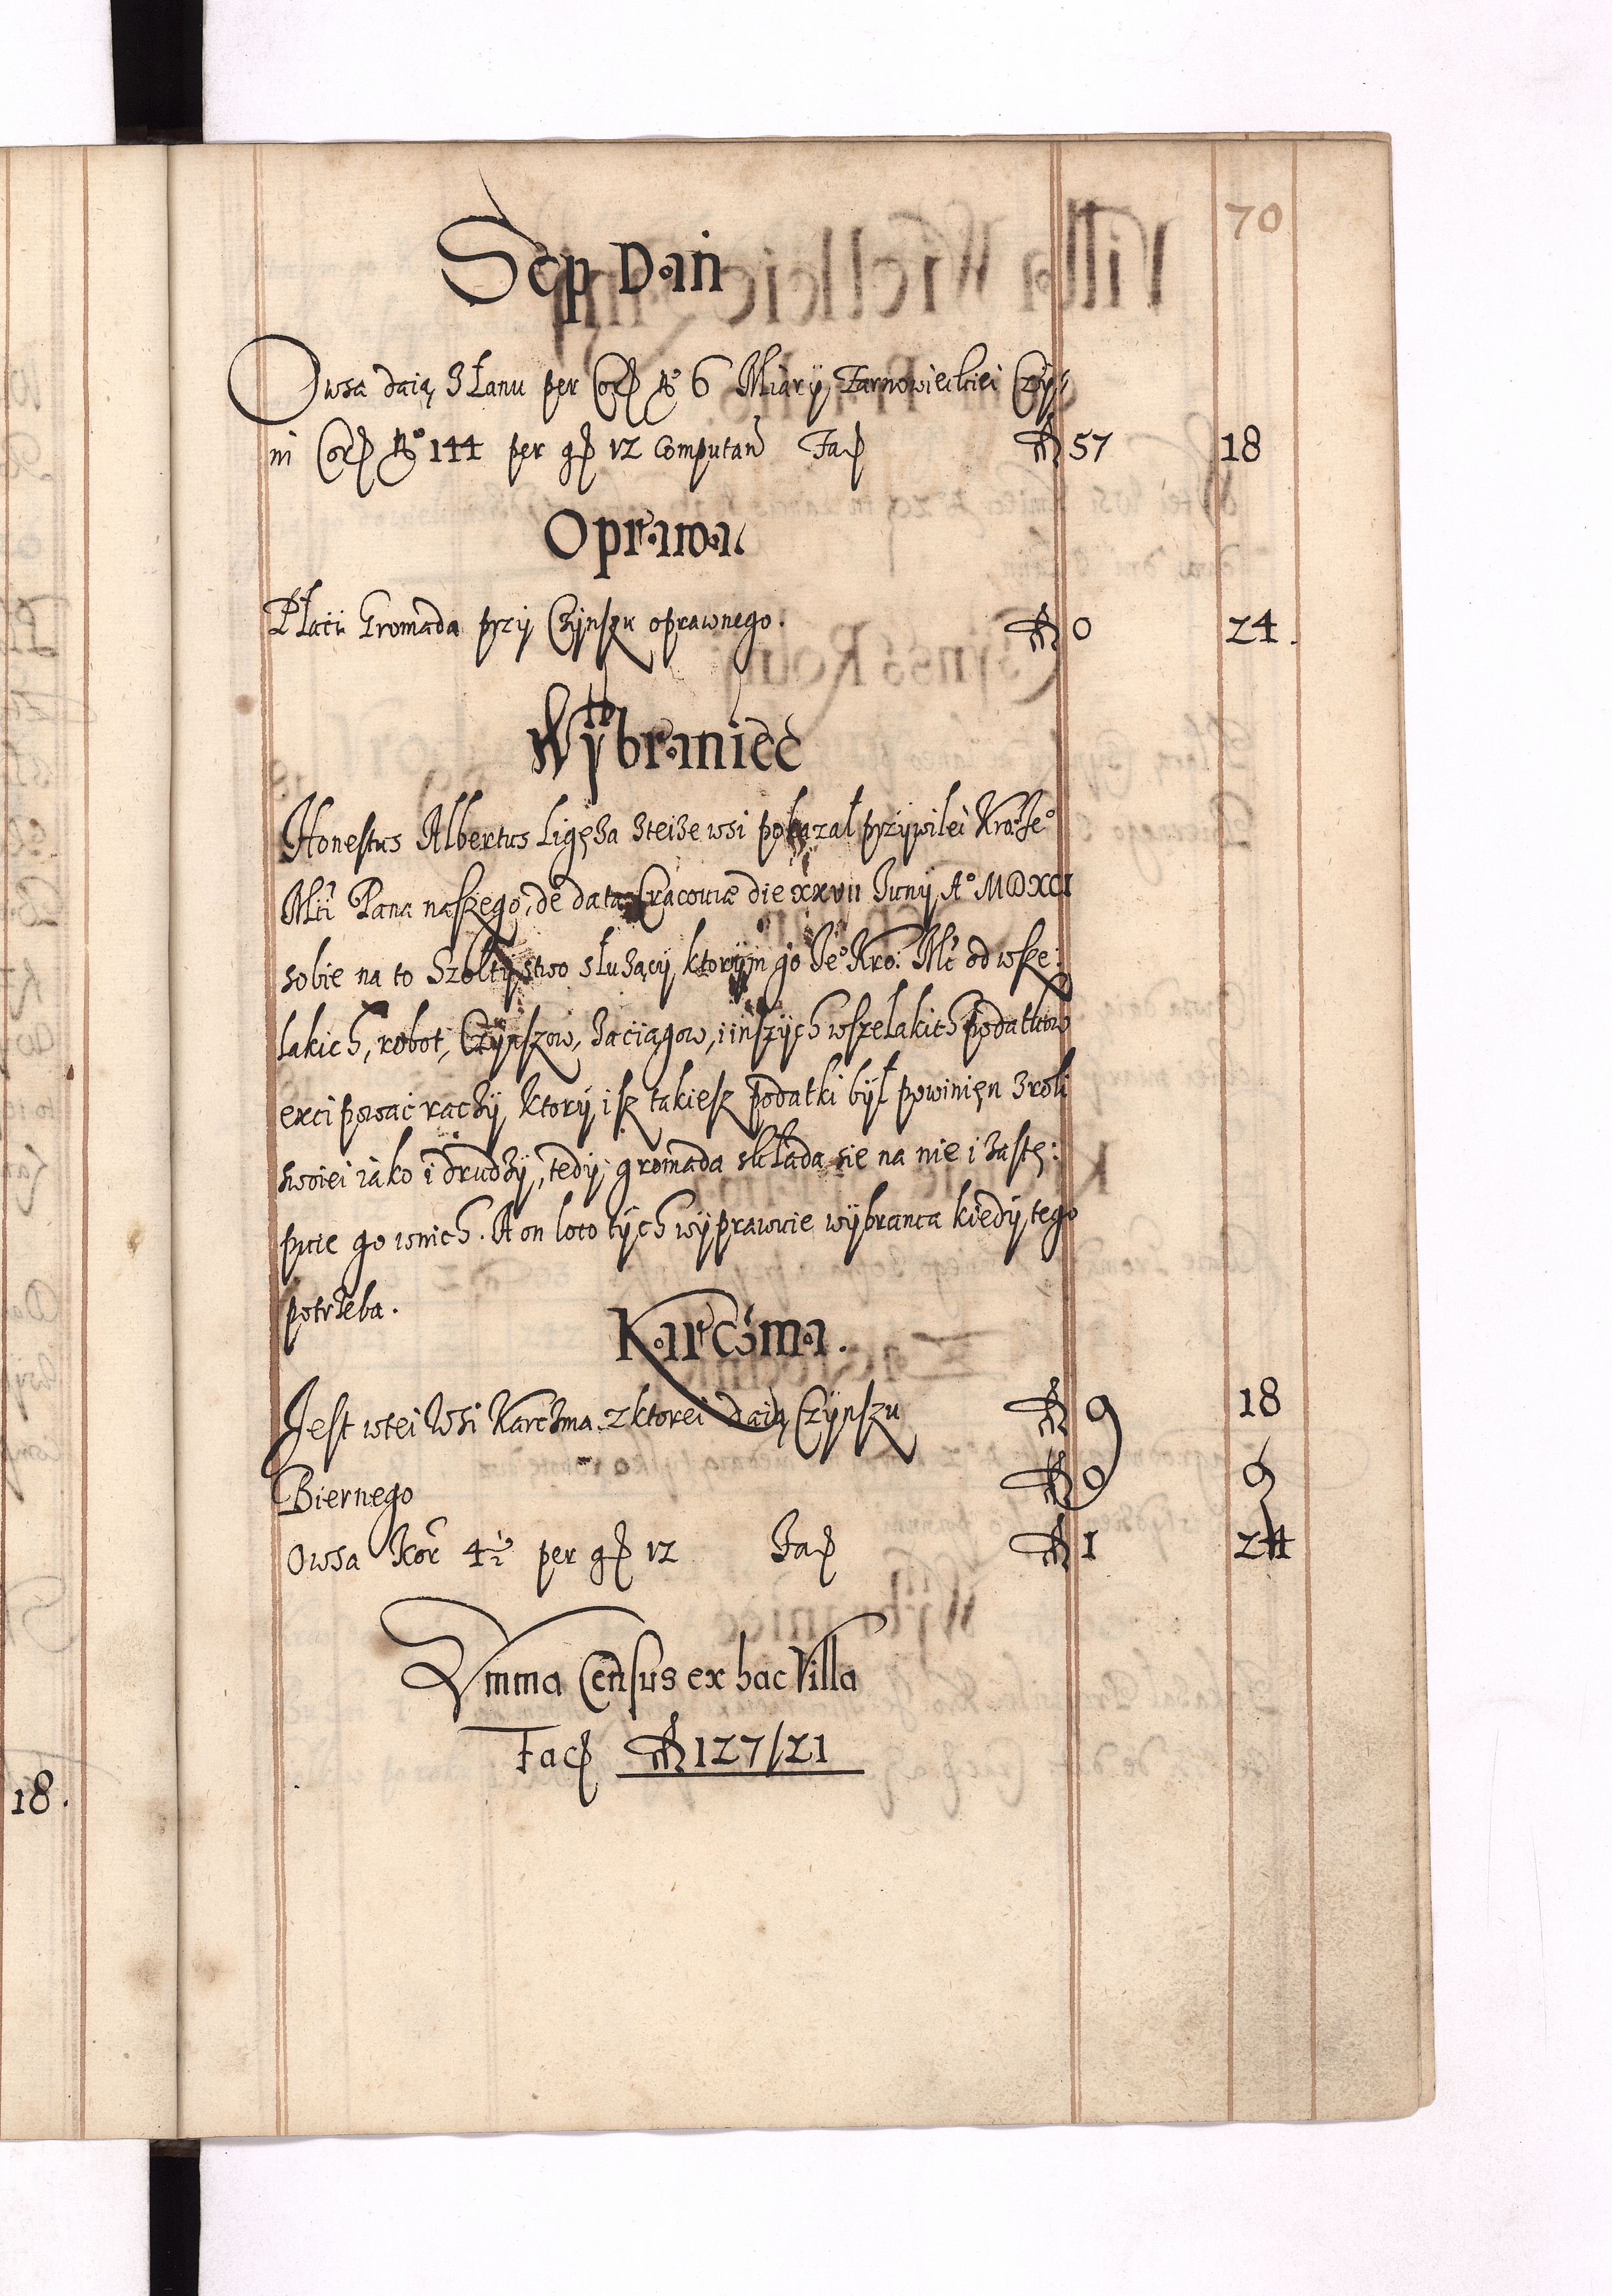 70
Sep Dań
Owsa daią z Łanu per Cor N° 6 Miary Tarnowieckiei Czÿ-
ni Cor N° 144 per g 12 Computand Fac fl 57 18
Oprawa
Płaci Gromada przÿ Czÿnszu oprawnego. fl 0 24.
Wÿbraniec
Honestus Albertus Ligęza zteize wsi pokazał przÿwilei Kro: Je°
Mci Pana naszego, de data Cracoviæ die XXVII Junÿ A° MDXCI
sobie na to Szoltÿstwo słuzącÿ, ktorÿm go Je° Kro: Mc od wsze:
lakich, robot, Czÿnszow, zaciągow, i inszÿch wszelakich podatkow
excipować raczÿ, ktorÿ isz takiesz podatki bÿł powinięn z roli
swoiei iako i drudzÿ, tedÿ gromada składa sie na nie i zastę:
puie go wnich. A on loco tÿch wÿprawuie wÿbranca kiedÿ tego
potrzeba.
Karczma.
Jest wtei Wsi Karczma z ktorei daią Czÿnszu fl 9 18
Biernego fl 0 9
Owsa Kor 4½ per g 12 Fac fl 1 24
Summa Census ex hac Villa
Fac fl 127/21
18.